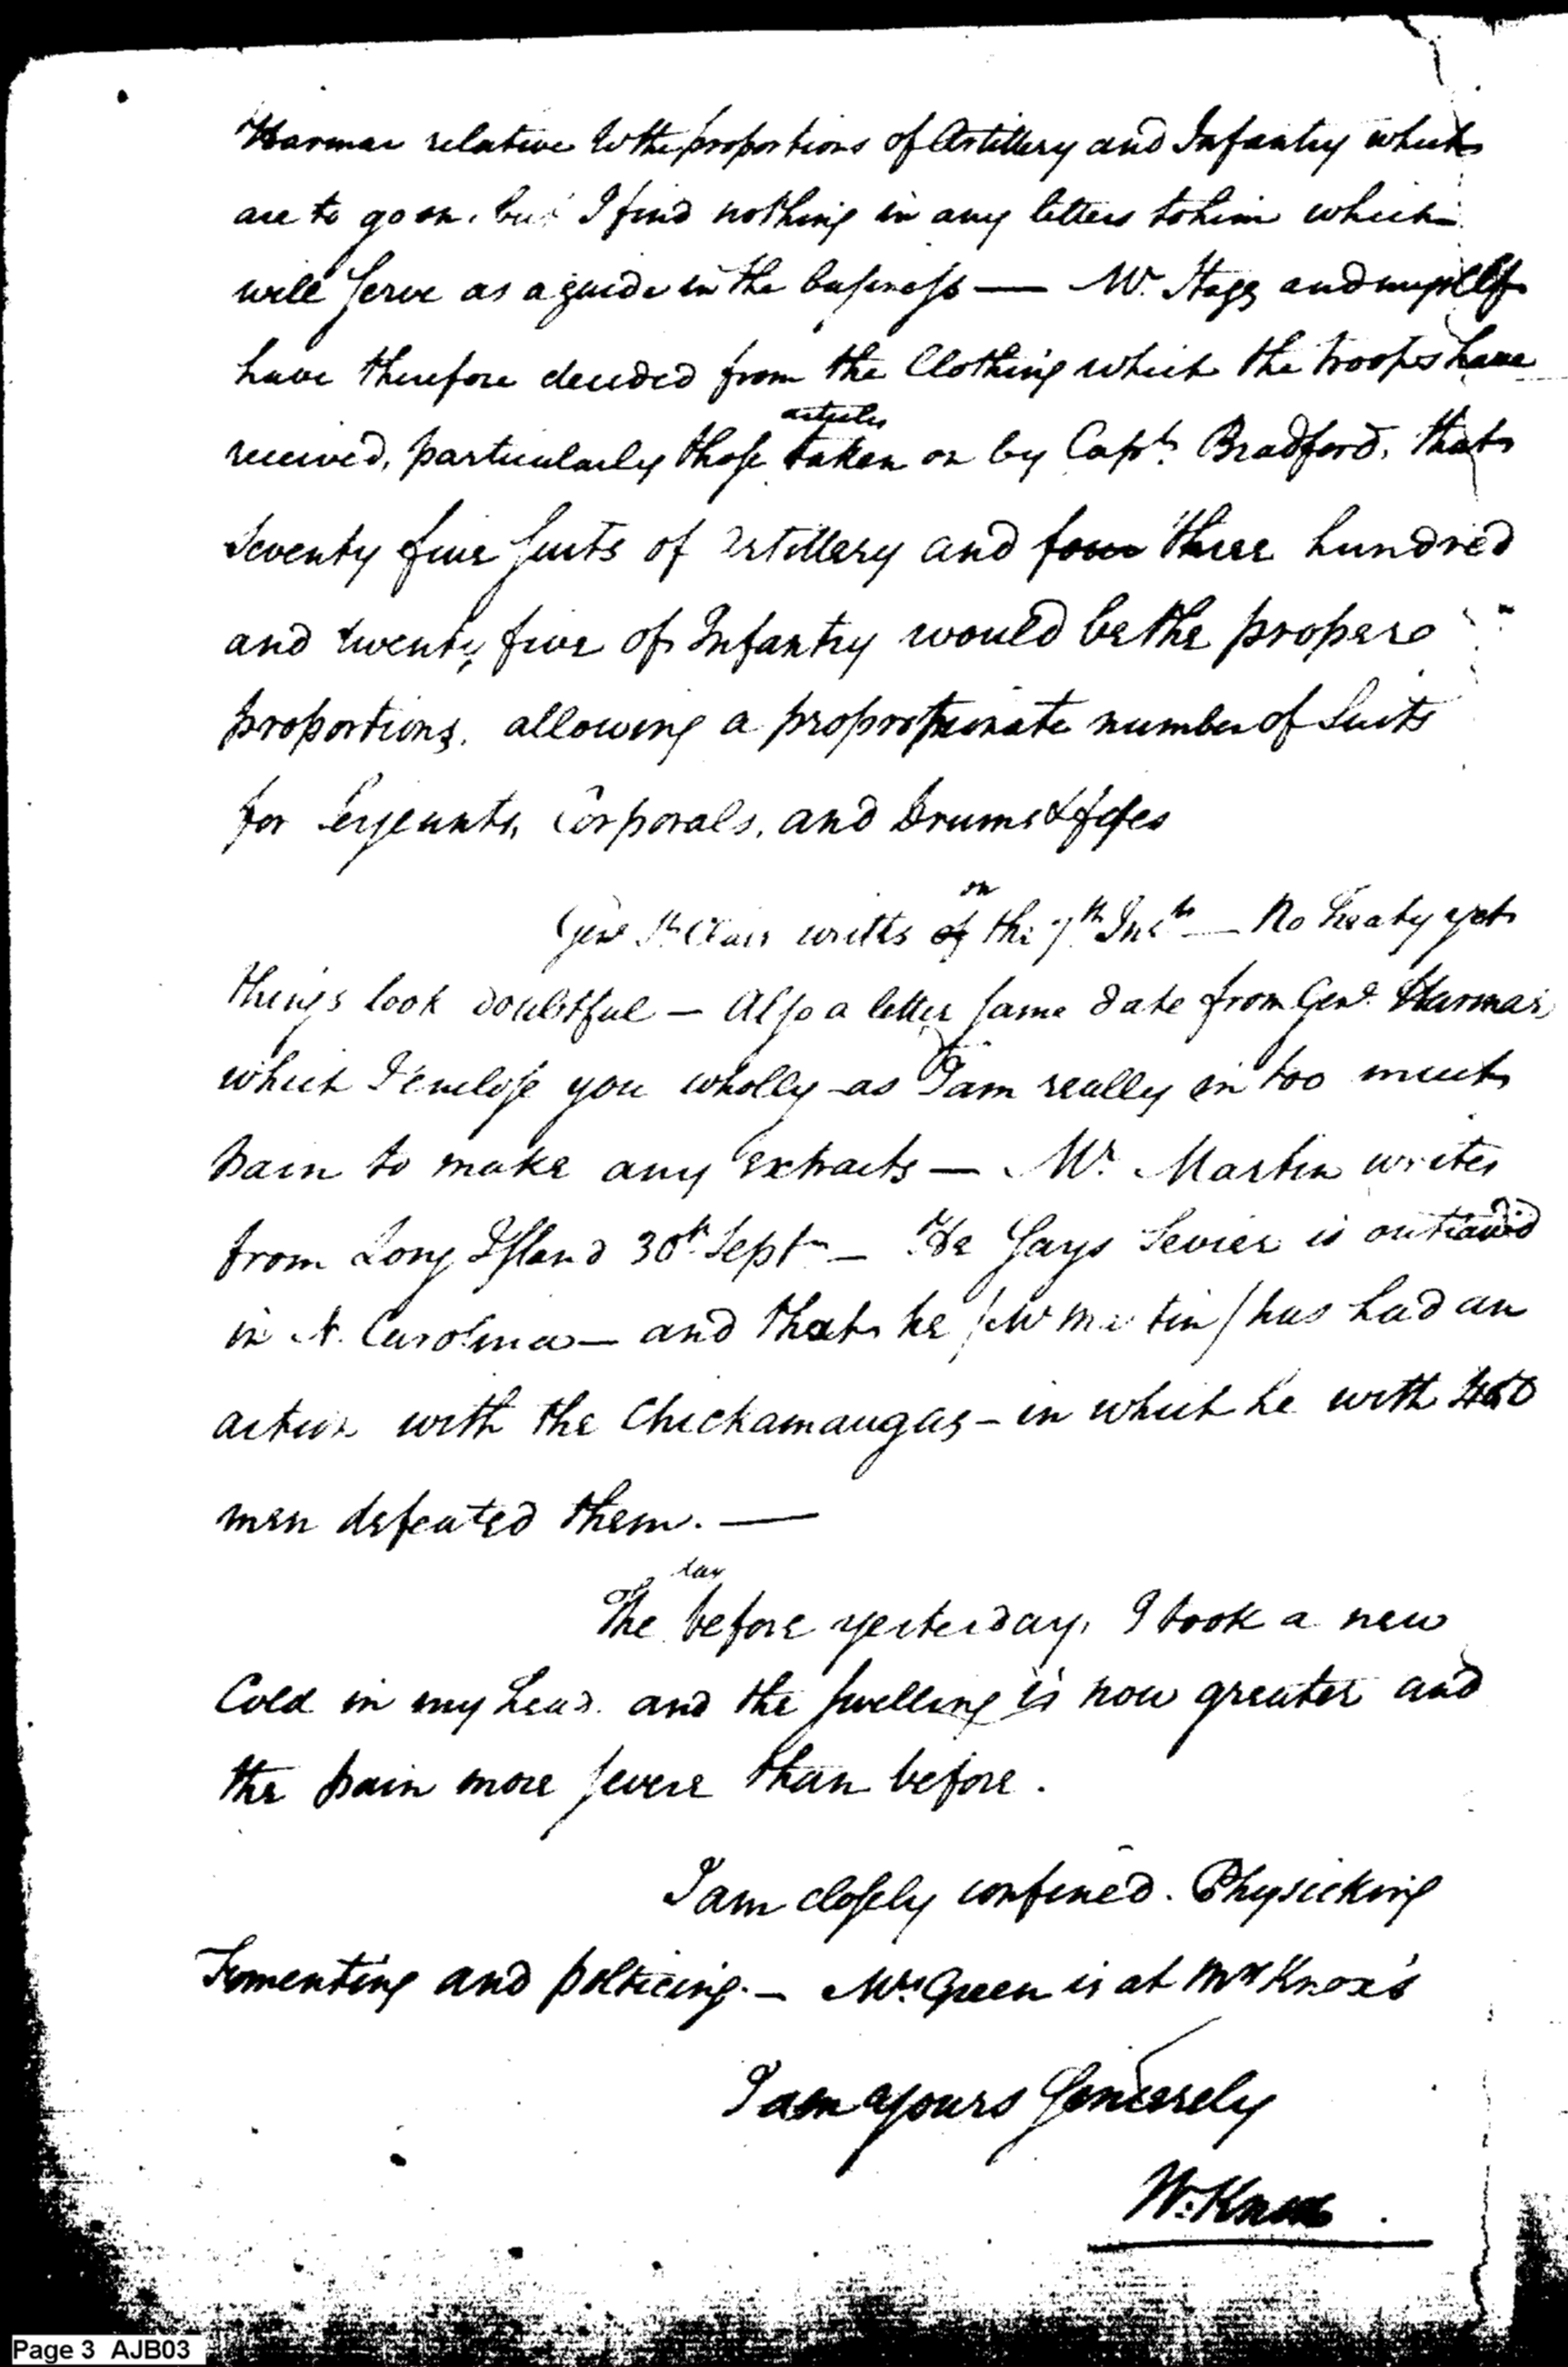 Harmar relative to the proportions of Artillery and Infantry which
are to go on, but I find nothing in any letters to him which
will serve as a guide in the business — Mr. Stagg and myself
have therefore decided from the Clothing which the troops have
articles
received, particularly those taken on by Capt. Bradford, that
Seventy five suits of Artillery and four three hundred
and twenty five of Infantry would be the proper
proportions, allowing a proportionate number of Suits
for Serjeants, Corporals, and Drums & fifes
on
Genl St Clair writes of the 7th Inst — No Treaty yet
things look doubtful — Also a letter same date from Genl. Harmar,
which I enclose you wholly as I am really in too much
pain to make any extracts — Mr. Martin writes
from Long Island 30th Septr — He Says Sevier is outlawed
in N. Carolina — and that he /Mr Martin/ has had an
action with the Chickamaugas — in which he with 450
men defeated them. —
day
The before yesterday, I took a new
Cold in my head. and the swelling is now greater and
the pain more severe than before.
I am closely confined. Physicking
Fomenting and polticing. — Mrs. Green is at Mrs Knox's
I am yours Sincerely
W. Knox.
Page 3 AJB03